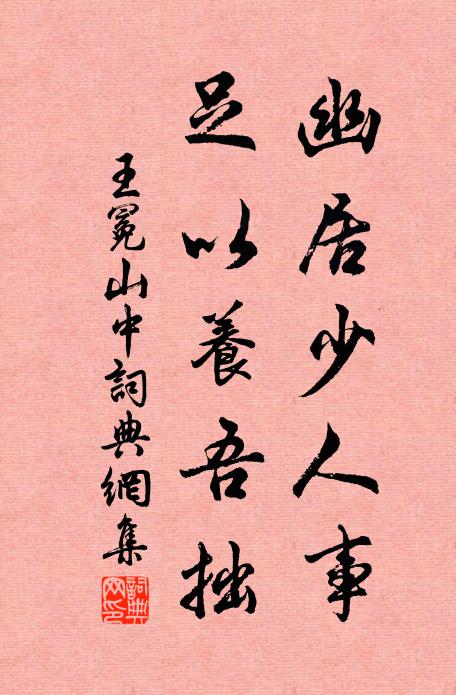 幽居少人事
足以養吾拙
王冕山中詞典網集
詞典
网印